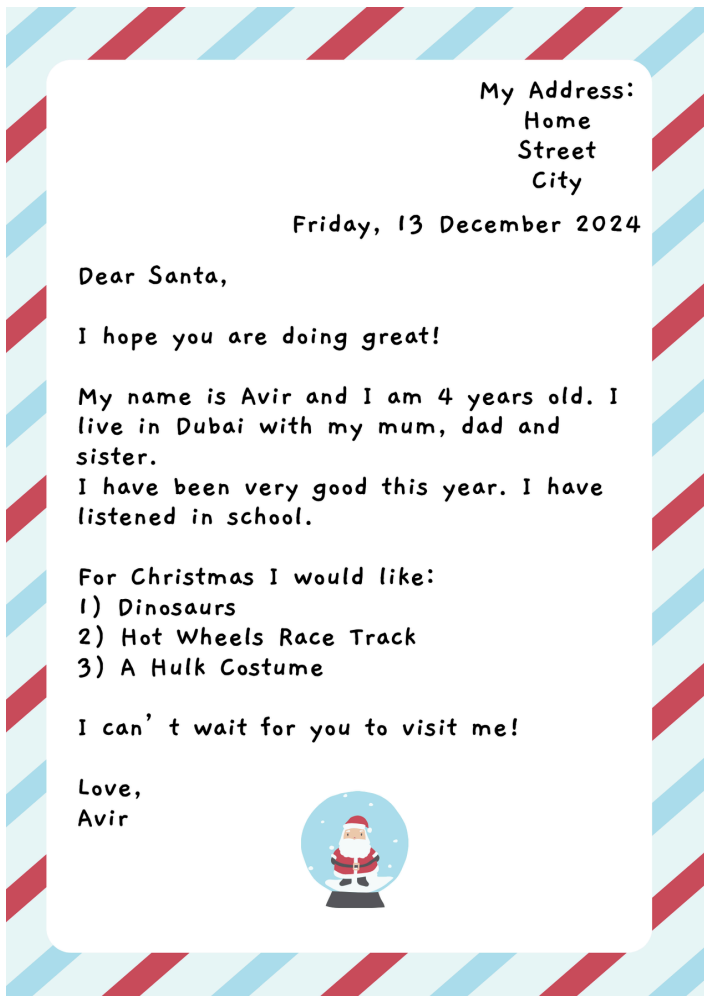 My Address:
Home
Street
City
Friday, 13 December 2024
Dear Santa,
I hope you are doing great!
My name is Avir and I am 4 years old. I
live in Dubai with my mum, dad and
sister.
I have been very good this year. I have
listened in school.
For Christmas I would like:
1) Dinosaurs
2) Hot Wheels Race Track
3) A Hulk Costume
I can’t wait for you to visit me!
Love,
Avir